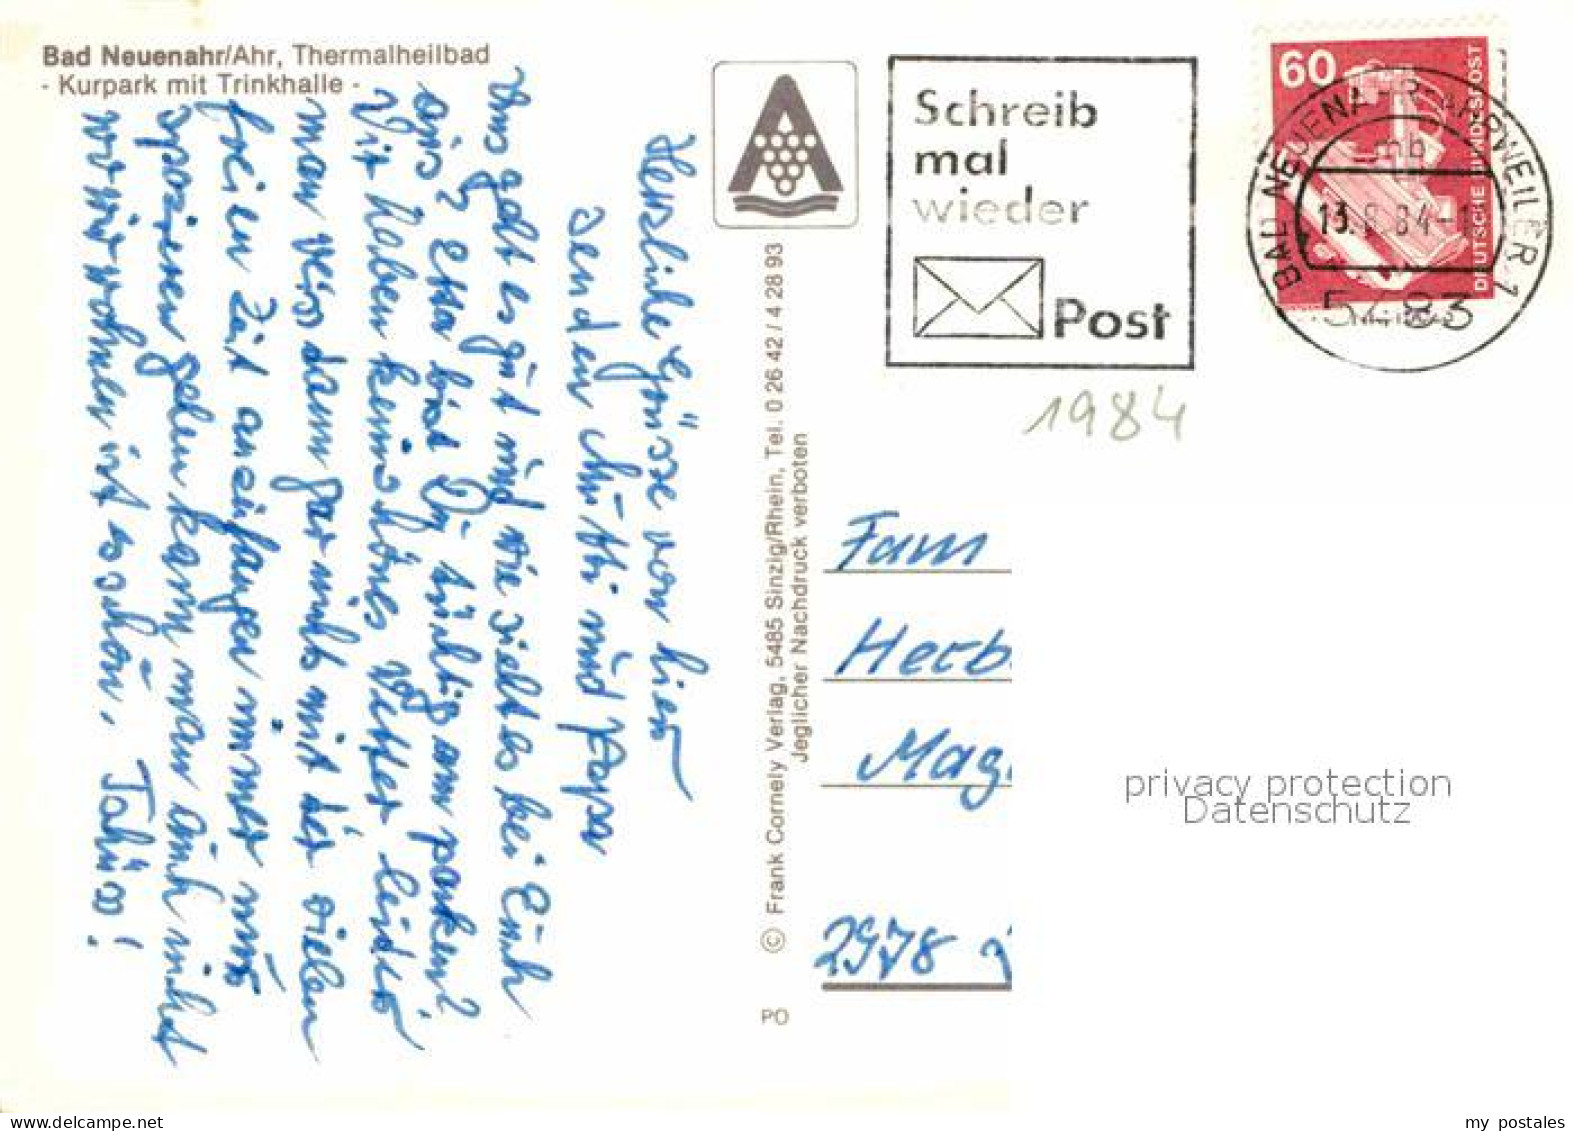 Bad Neuenahr/Ahr, Thermalheilbad
- Kurpark mit Trinkhalle -
Herzliche Grüsse von hier
senden Mutti und Papa
Uns geht es gut und wie sieht es bei Euch
aus? bist Du tüchtig am pauken?
Wir haben kein schönes Wetter leider
man weis dann gar nicht mit der vielen
freien Zeit anzufangen immer nur
spazieren gehen kann man auch nicht
wo wir wohnen ist es schön. Tschüss!
© Frank Cornely Verlag, 5485 Sinzig/Rhein, Tel. 0 26 42 / 4 28 93
Jeglicher Nachdruck verboten
PO
Schreib
mal
wieder
Post
60
DEUTSCHE BUNDESPOST
BAD NEUENAHR-AHRWEILER 1
mb
13.8.84-1
5483
1984
Fam
Herb
Mag
2978
privacy protection
Datenschutz
my postales